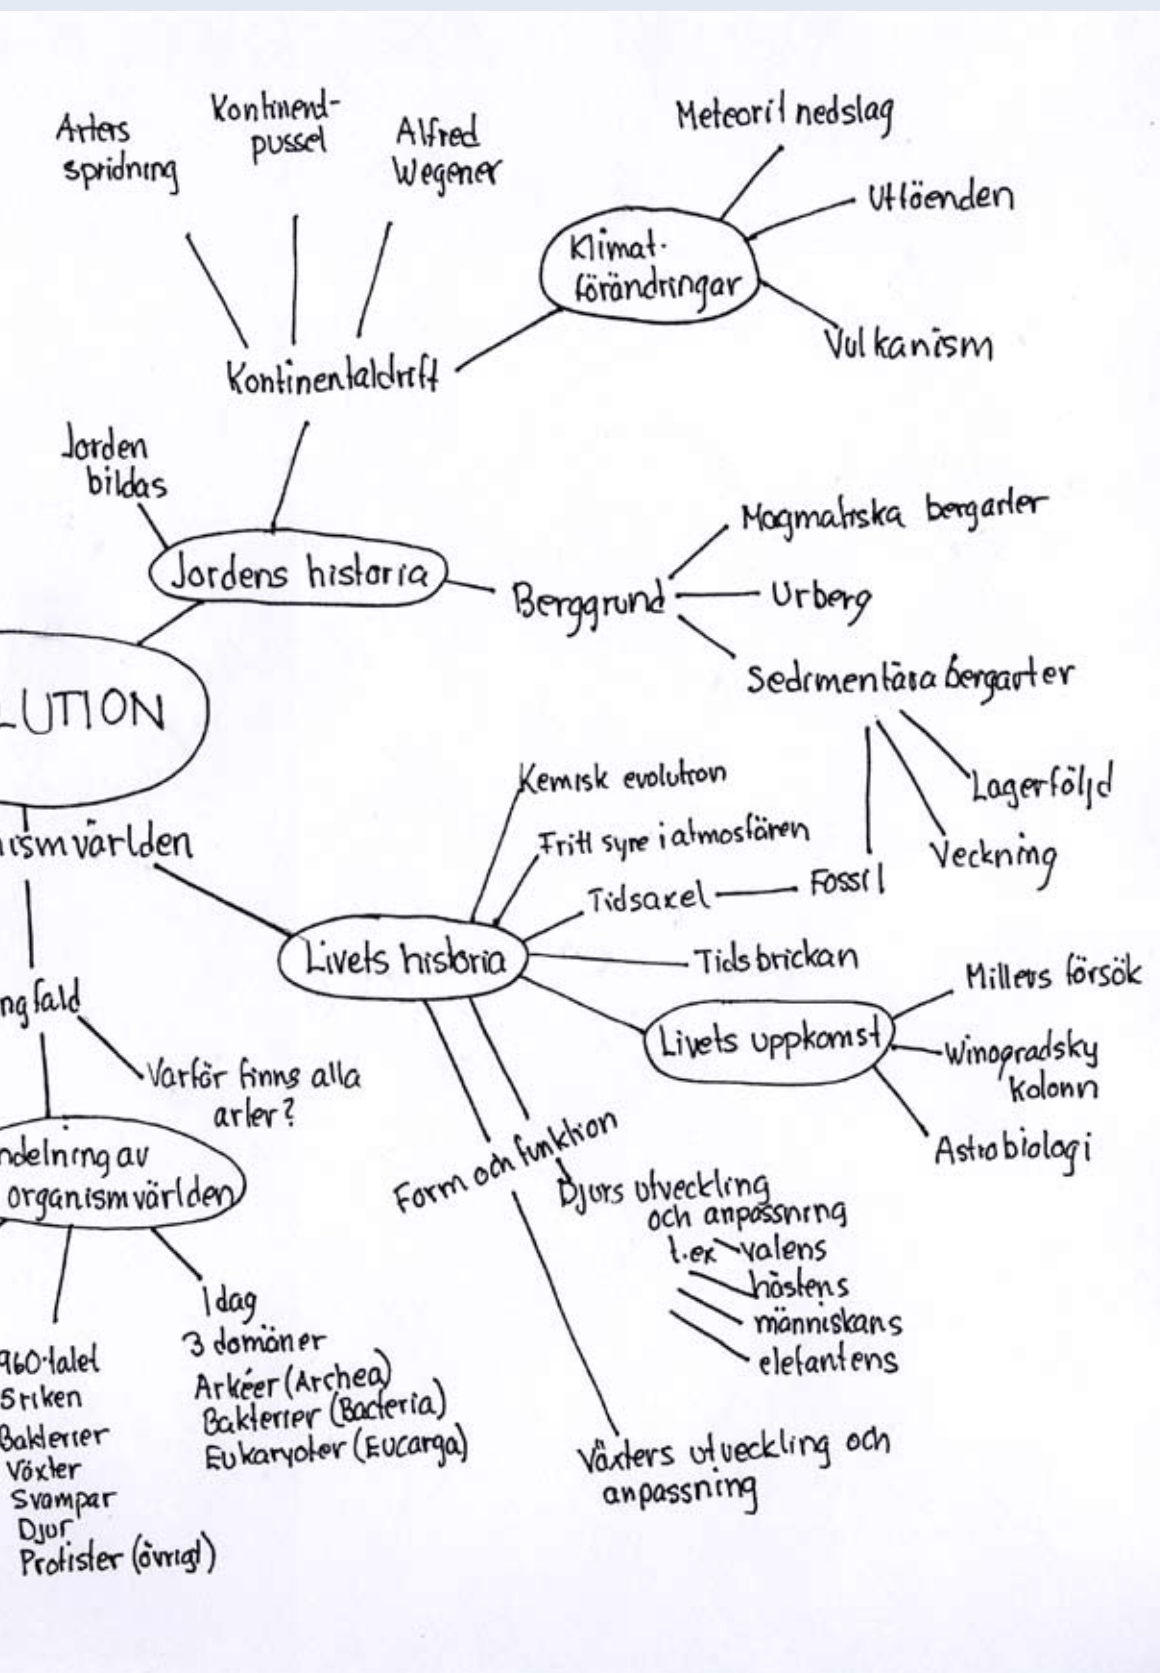 Arters
spridning
Kontinent-
pussel
Alfred
Wegener
Meteorit nedslag
Utdöenden
Klimat-
förändringar
Vulkanism
Kontinentaldrift
Jorden
bildas
Jordens historia
Berggrund
Magmatiska bergarter
Urberg
Sedimentära bergarter
Lagerföljd
Veckning
Fossil
LUTION
nismvärlden
Kemisk evolution
Fritt syre i atmosfären
Tidsaxel
Tidsbrickan
Livets historia
Livets uppkomst
Millers försök
Winogradsky
kolonn
Astrobiologi
ngfald
Varför finns alla
arter?
ndelning av
organismvärlden
Form och funktion
Djurs utveckling
och anpassning
t.ex valens
hästens
människans
elefantens
Växters utveckling och
anpassning
960-talet
5 riken
Bakterier
Växter
Svampar
Djur
Protister (övrigt)
Idag
3 domäner
Arkéer (Archea)
Bakterier (Bacteria)
Eukaryoter (Eucarya)